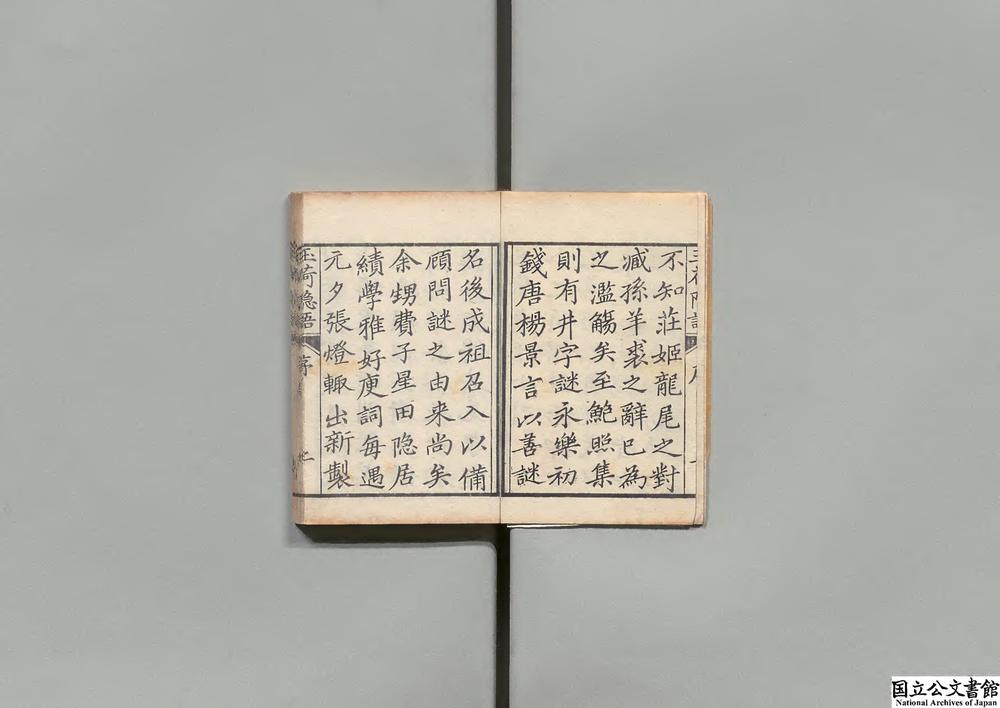 不知莊姬龍尾之對
臧孫羊裘之辭已為
之濫觴矣至鮑照集
則有井字謎永樂初
錢唐楊景言以善謎
名後成祖召入以備
顧問謎之由来尚矣
余甥費子星田隐居
績學雅好庾詞每遇
元夕張燈輙出新製
玉荷隐語
國立公文書館
National Archives of Japan